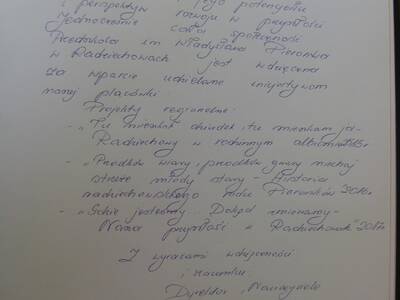 i perspektyw jego potencjału
rozwoju w przyszłości
Jednocześnie cała społeczność
Przedszkola im Władysława Pieronka
w Radziechowach jest wdzięczna
za wparcie udzielane inicjatywom
naszej placówki.
Projekty regionalne:
- „Tu mieszkał dziadek, tu mieszkam ja-
Radziechowy w rodzinnym albumie 2015r
- „Przodków wiary, przodków gwary niechaj
strzeże młody stary - Historia
radziechowskiego rodu Pieronków 2016r.
- „Gdzie jesteśmy - Dokąd zmierzamy-
Nasza przyszłość w Radziechowach" 2017r
Z wyrazami wdzięczności
i szacunku
Dyrektor, Nauczyciele